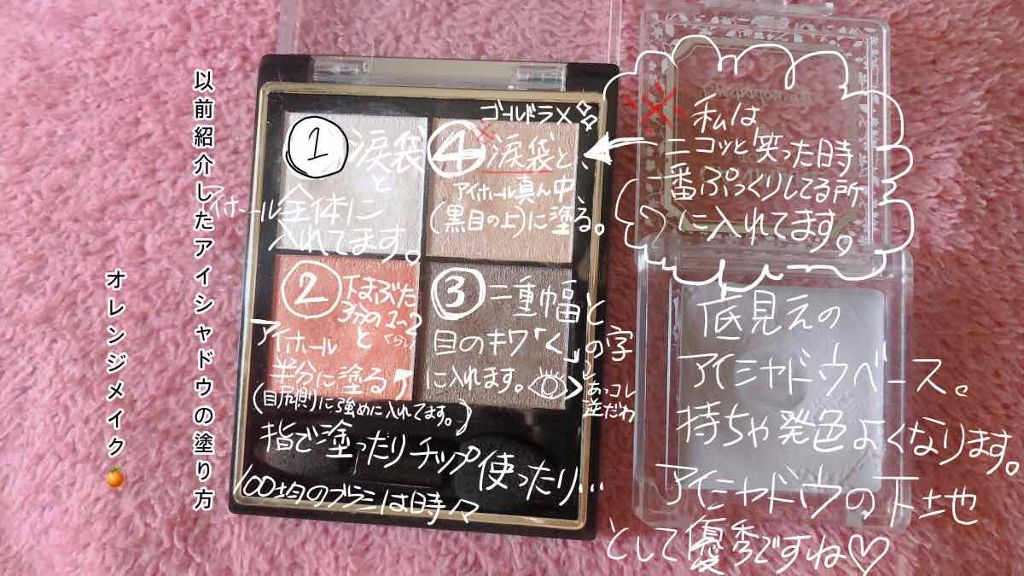 以前紹介したアイシャドウの塗り方
オレンジメイク🍊
① 涙袋
と
アイホール全体に
入れてます。
ゴールドラメ
④ 涙袋と、
アイホール真ん中
(黒目の上)に塗る。
② 下まぶた
3分の1つ
くらい
と
アイホール
半分に塗る
(目尻側に強めに入れてます。)
③ 二重幅と
目のキワ「く」の字
に入れます。
あっコレ
逆だわ
指で塗ったりチップ使ったり…
100均のブラシは時々
私は
ニコッと笑った時
一番ぷっくりしてる所
に入れてます。
底見えの
アイシャドウベース。
持ちや発色よくなります。
アイシャドウの下地
として優秀ですね♡